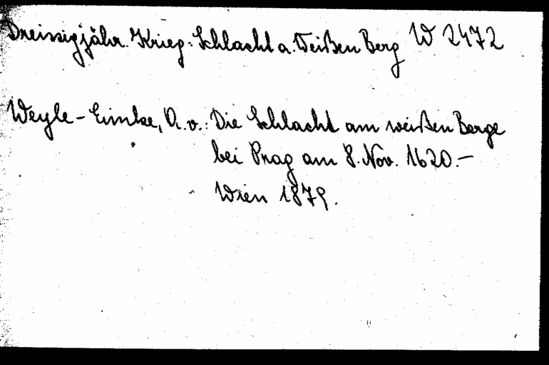 Dreissigjähr. Krieg: Schlacht a. Weißen Berg W 2472
Weyhe-Eimke, A. v.: Die Schlacht am weißen Berge
bei Prag am 8. Nov. 1620.–
Wien 1879.